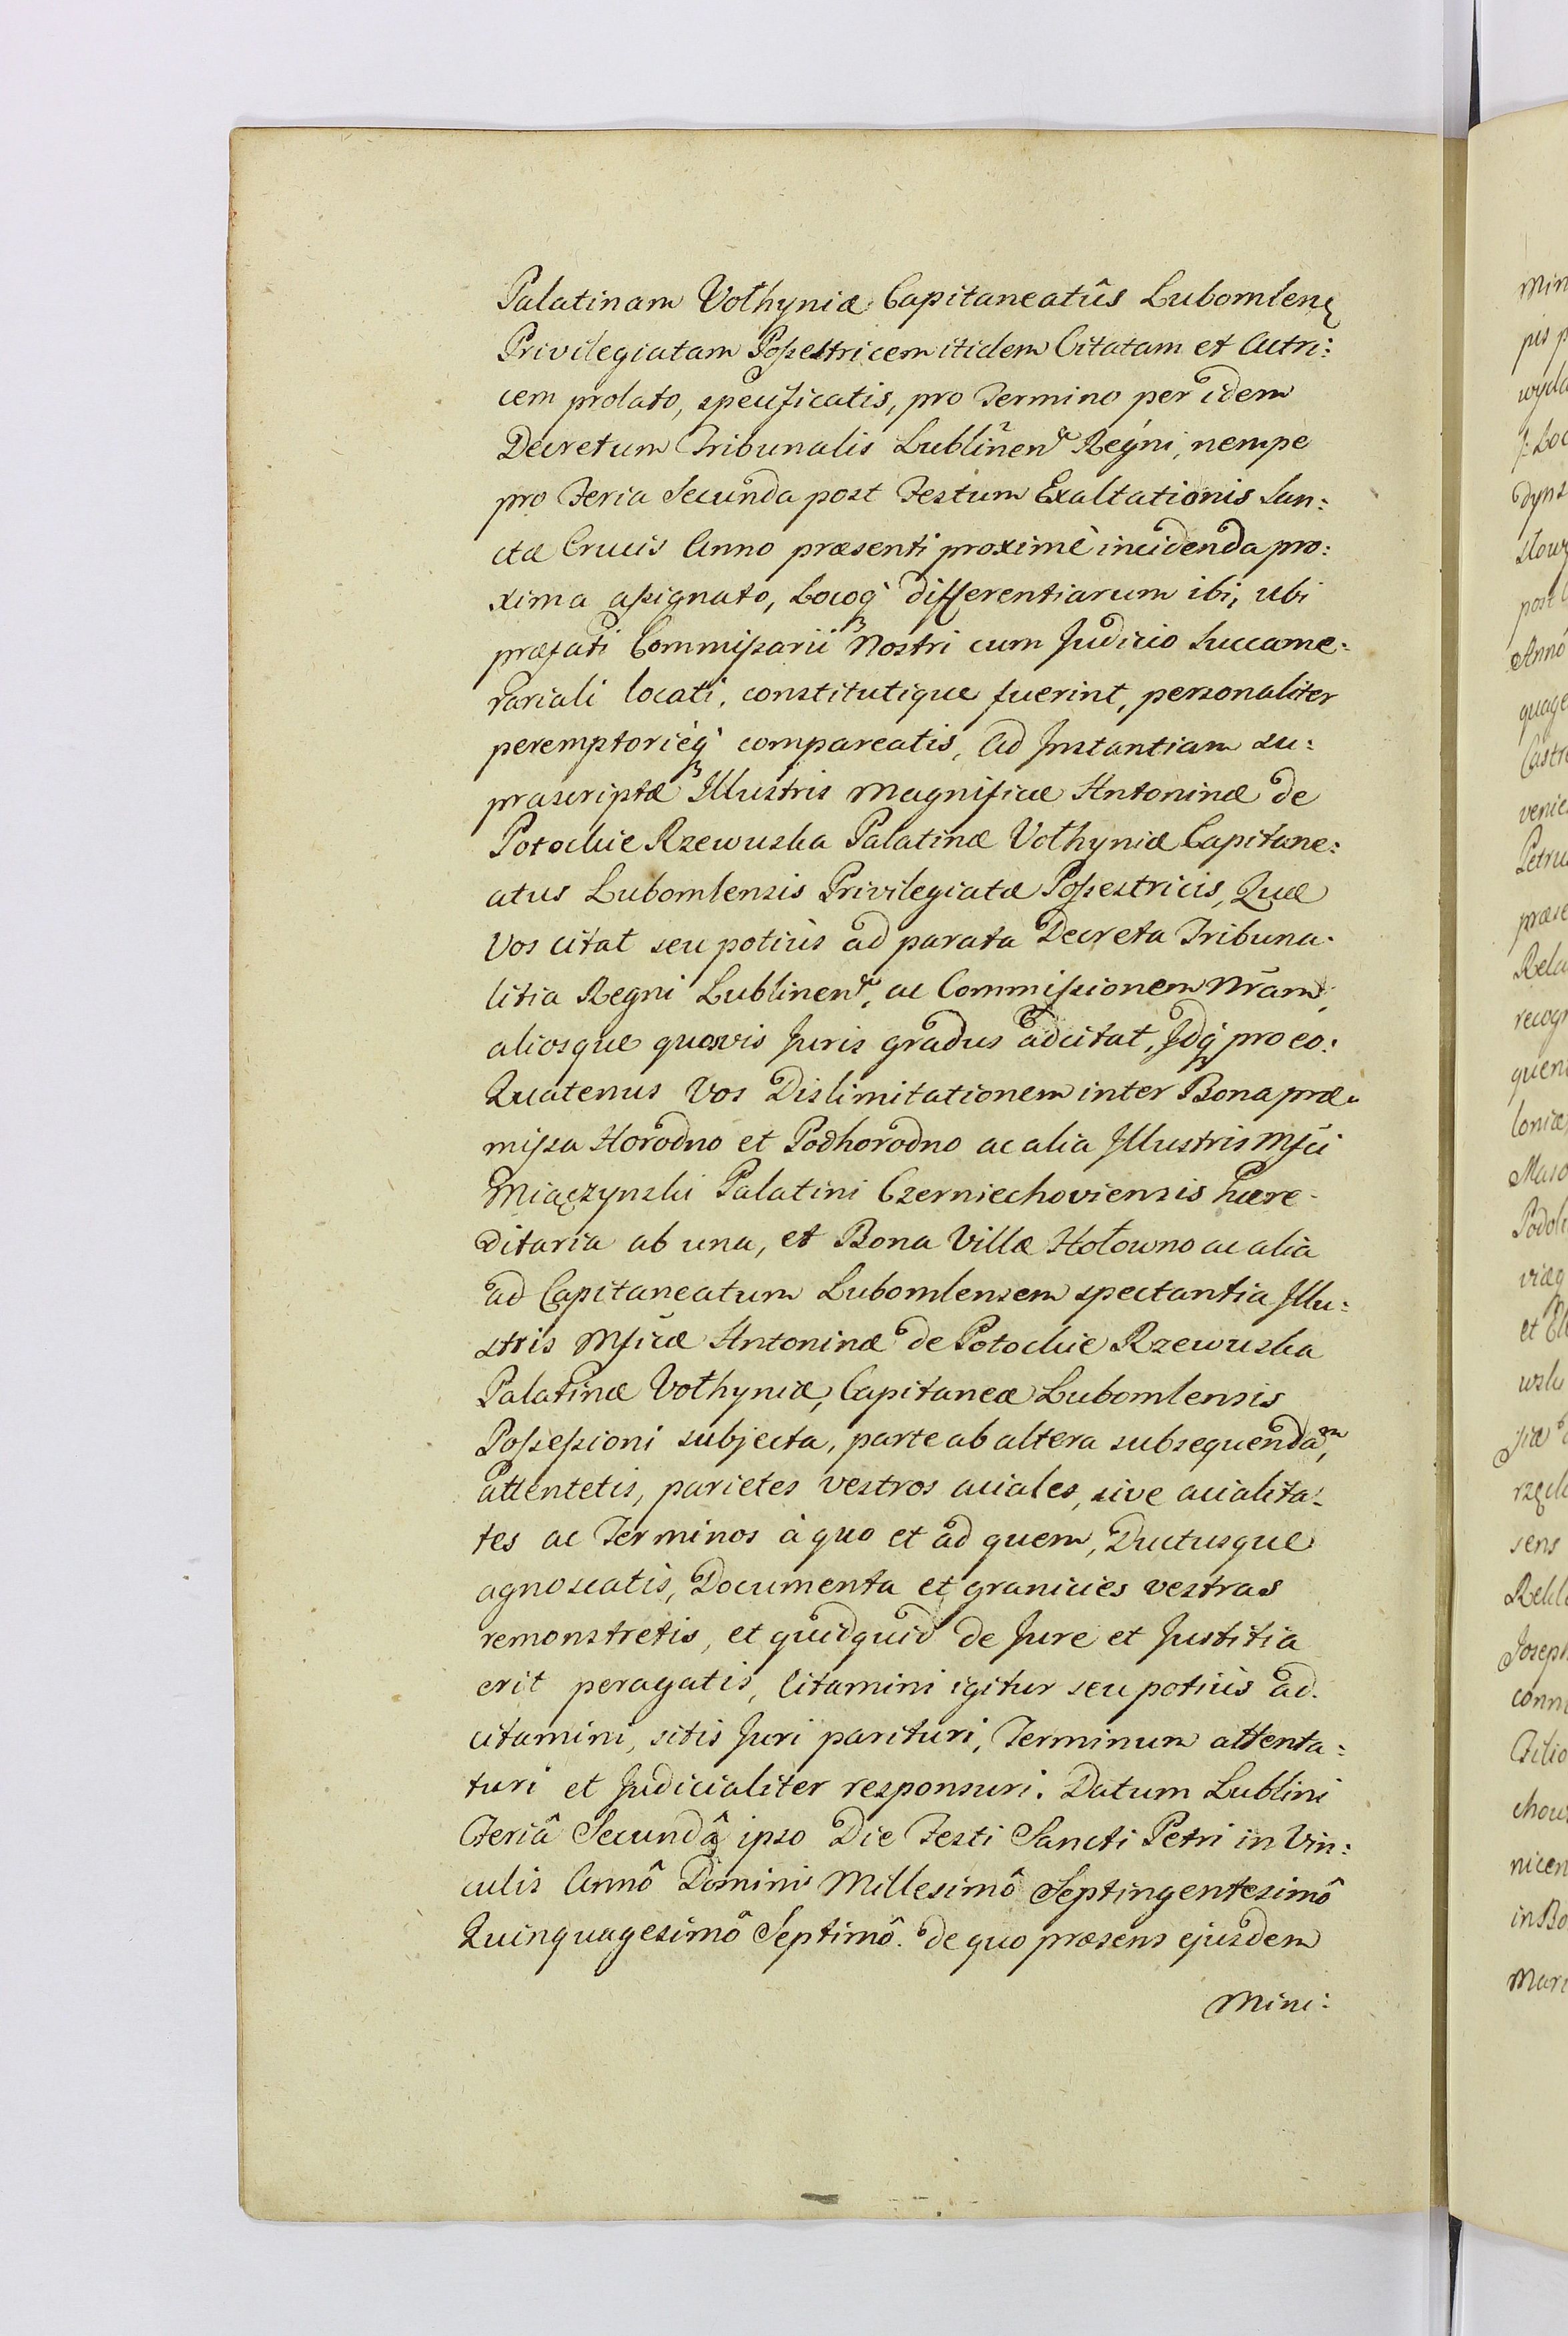 Palatinam Vołhyniæ Capitaneatûs Lubomlen
Privilegiatam Possestricem itidem Citatam et Actri:
cem prolato, specificatis, pro Termino per idem
Decretum Tribunalis Lublinen Regni, nempe
pro Feria Secunda post Festum Exaltationis San:
ctæ Crucis Anno præsenti proximè incidenda pro:
xima assignato, Locoq differentiarum ibi, ubi
præfati Commissarii Nostri cum Judicio Succame:
rariali locati, constitutique fuerint, personaliter
peremptorièq compareatis, Ad Instantiam su:
prascriptæ Illustris Magnificæ Antoninæ de
Potockie Rzewuska Palatinæ Vołhyniæ Capitane:
atus Lubomlensis Privilegiatæ Possestricis, Quæ
Vos citat seu potiùs ad parata Decreta Tribuna:
litia Regni Lublinen, ac Commissionem Nrām,
aliosque quosvis Juris gradus adcitat, Idq pro eo:
Quatenus Vos Dislimitationem inter Bona præ:
missa Horodno et Podhorodno ac alia Illustris Mfci
Miączynski Palatini Czerniechoviensis hære:
ditaria ab una, et Bona Villæ Hołowno ac alia
ad Capitaneatum Lubomlensem spectantia Illu:
stris Mficæ Antoninæ de Potockie Rzewuska
Palatinæ Vołhyniæ, Capitaneæ Lubomlensis
Possessioni subjecta, parte ab altera subsequendam,
attentetis, parietes vestros aciales, sive acialita:
tes ac Terminos à quo et ad quem, Ductusque
agnoscatis, Documenta et granicies vestras
remonstretis, et quidquid de Jure et Justitia
erit peragatis, Citamini igitur seu potiùs ad:
citamini, sitis Juri parituri, Terminum attenta:
turi et Judicialiter responsuri. Datum Lublini
Feriâ Secundâ ipso Die Festi Sancti Petri in Vin:
culis Annô Domini Millesimô Septingentesimô
Quinquagesimô Septimô. de quo præsens ejusdem
Mini: